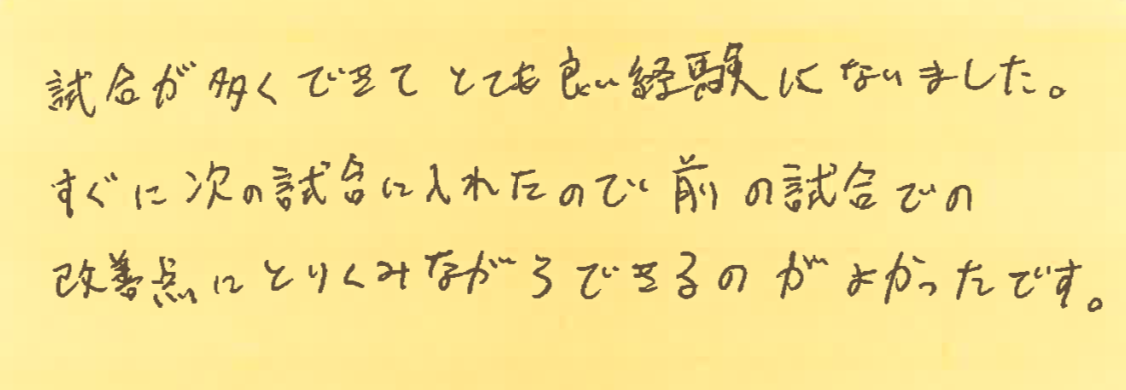 試合が多くできてとても良い経験になりました。
すぐに次の試合に入れたので前の試合での
改善点にとりくみながらできるのがよかったです。